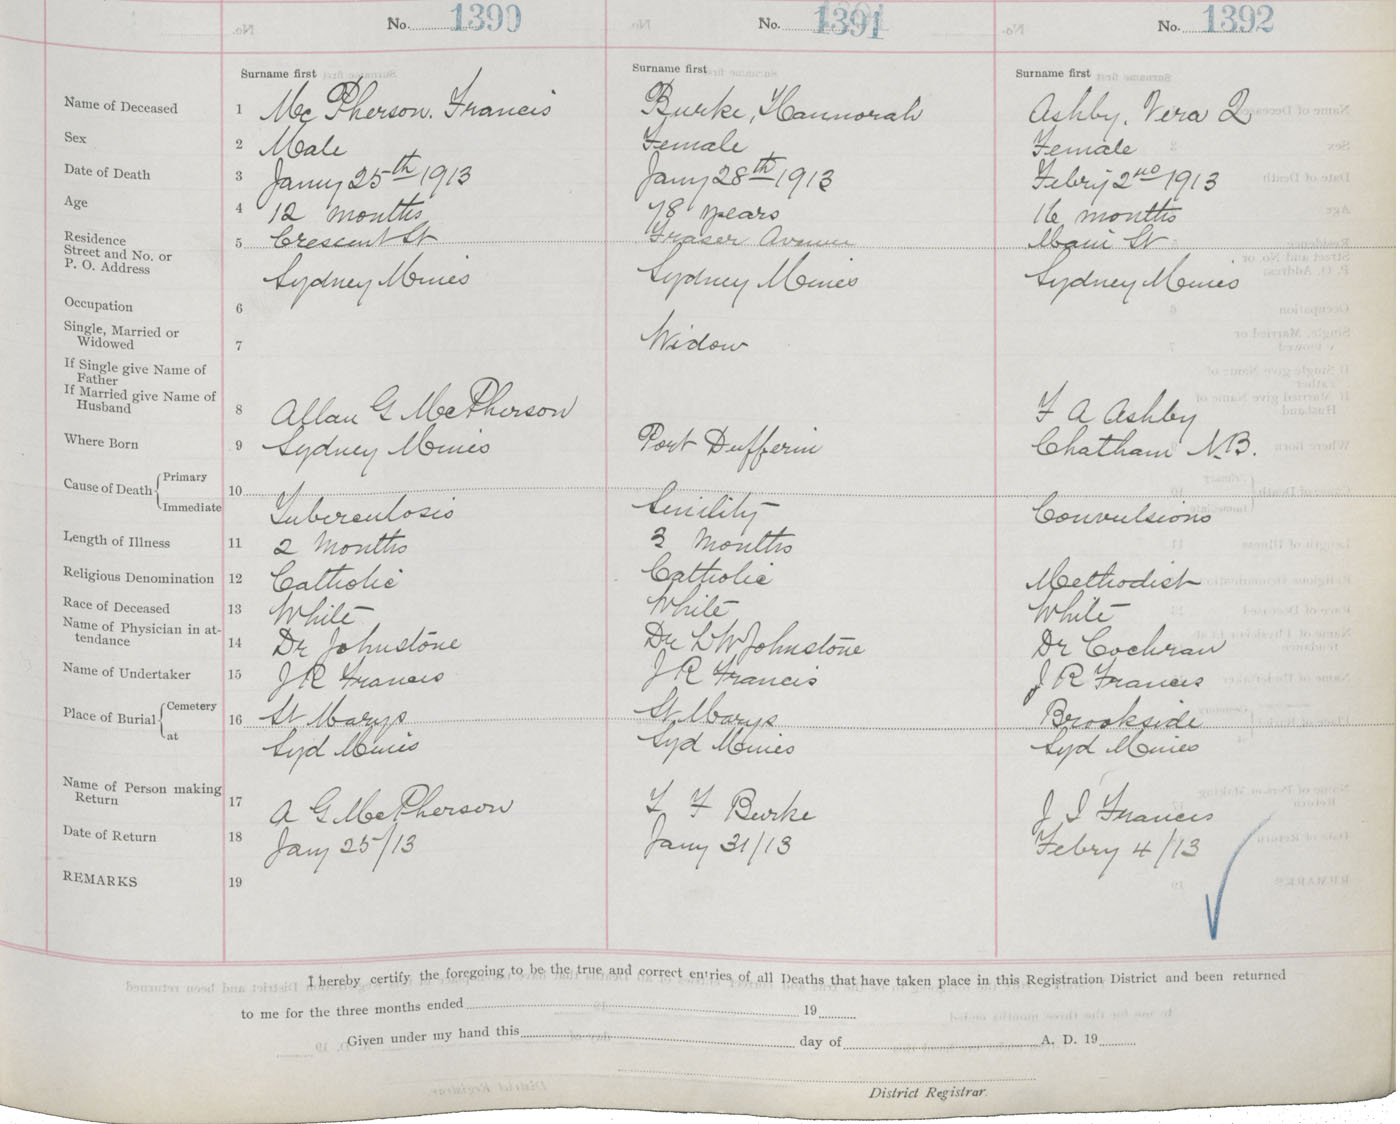 No. 1390 No. 1391 No. 1392
Surname first Surname first Surname first
Name of Deceased 1 Mc Pherson. Francis Burke, Hannorah Ashby, Vera Q
Sex 2 Male Female Female
Date of Death 3 Jany 25th 1913 Jany 28th 1913 Febry 2nd 1913
Age 4 12 months 78 years 16 months
Residence 5 Crescent St Fraser Avenue Main St
Street and No. or
P. O. Address Sydney Mines Sydney Mines Sydney Mines
Occupation 6
Single, Married or
Widowed 7 Widow
If Single give Name of
Father
If Married give Name of
Husband 8 Allan G McPherson F A Ashby
Where Born 9 Sydney Mines Port Dufferin Chatham N.B.
Cause of Death Primary 10
Immediate Tuberculosis Senility Convulsions
Length of Illness 11 2 Months 3 Months
Religious Denomination 12 Catholic Catholic Methodist
Race of Deceased 13 White White White
Name of Physician in at-
tendance 14 Dr Johnstone Dr L W Johnstone Dr Cochran
Name of Undertaker 15 J R Francis J R Francis J R Francis
Place of Burial Cemetery 16 St Marys St Marys Brookside
at Syd Mines Syd Mines Syd Mines
Name of Person making
Return 17 A G McPherson F Burke J Francis
Date of Return 18 Jany 25/13 Jany 31/13 Febry 4/13
REMARKS 19
I hereby certify the foregoing to be the true and correct entries of all Deaths that have taken place in this Registration District and been returned
to me for the three months ended 19
Given under my hand this day of A. D. 19
District Registrar.